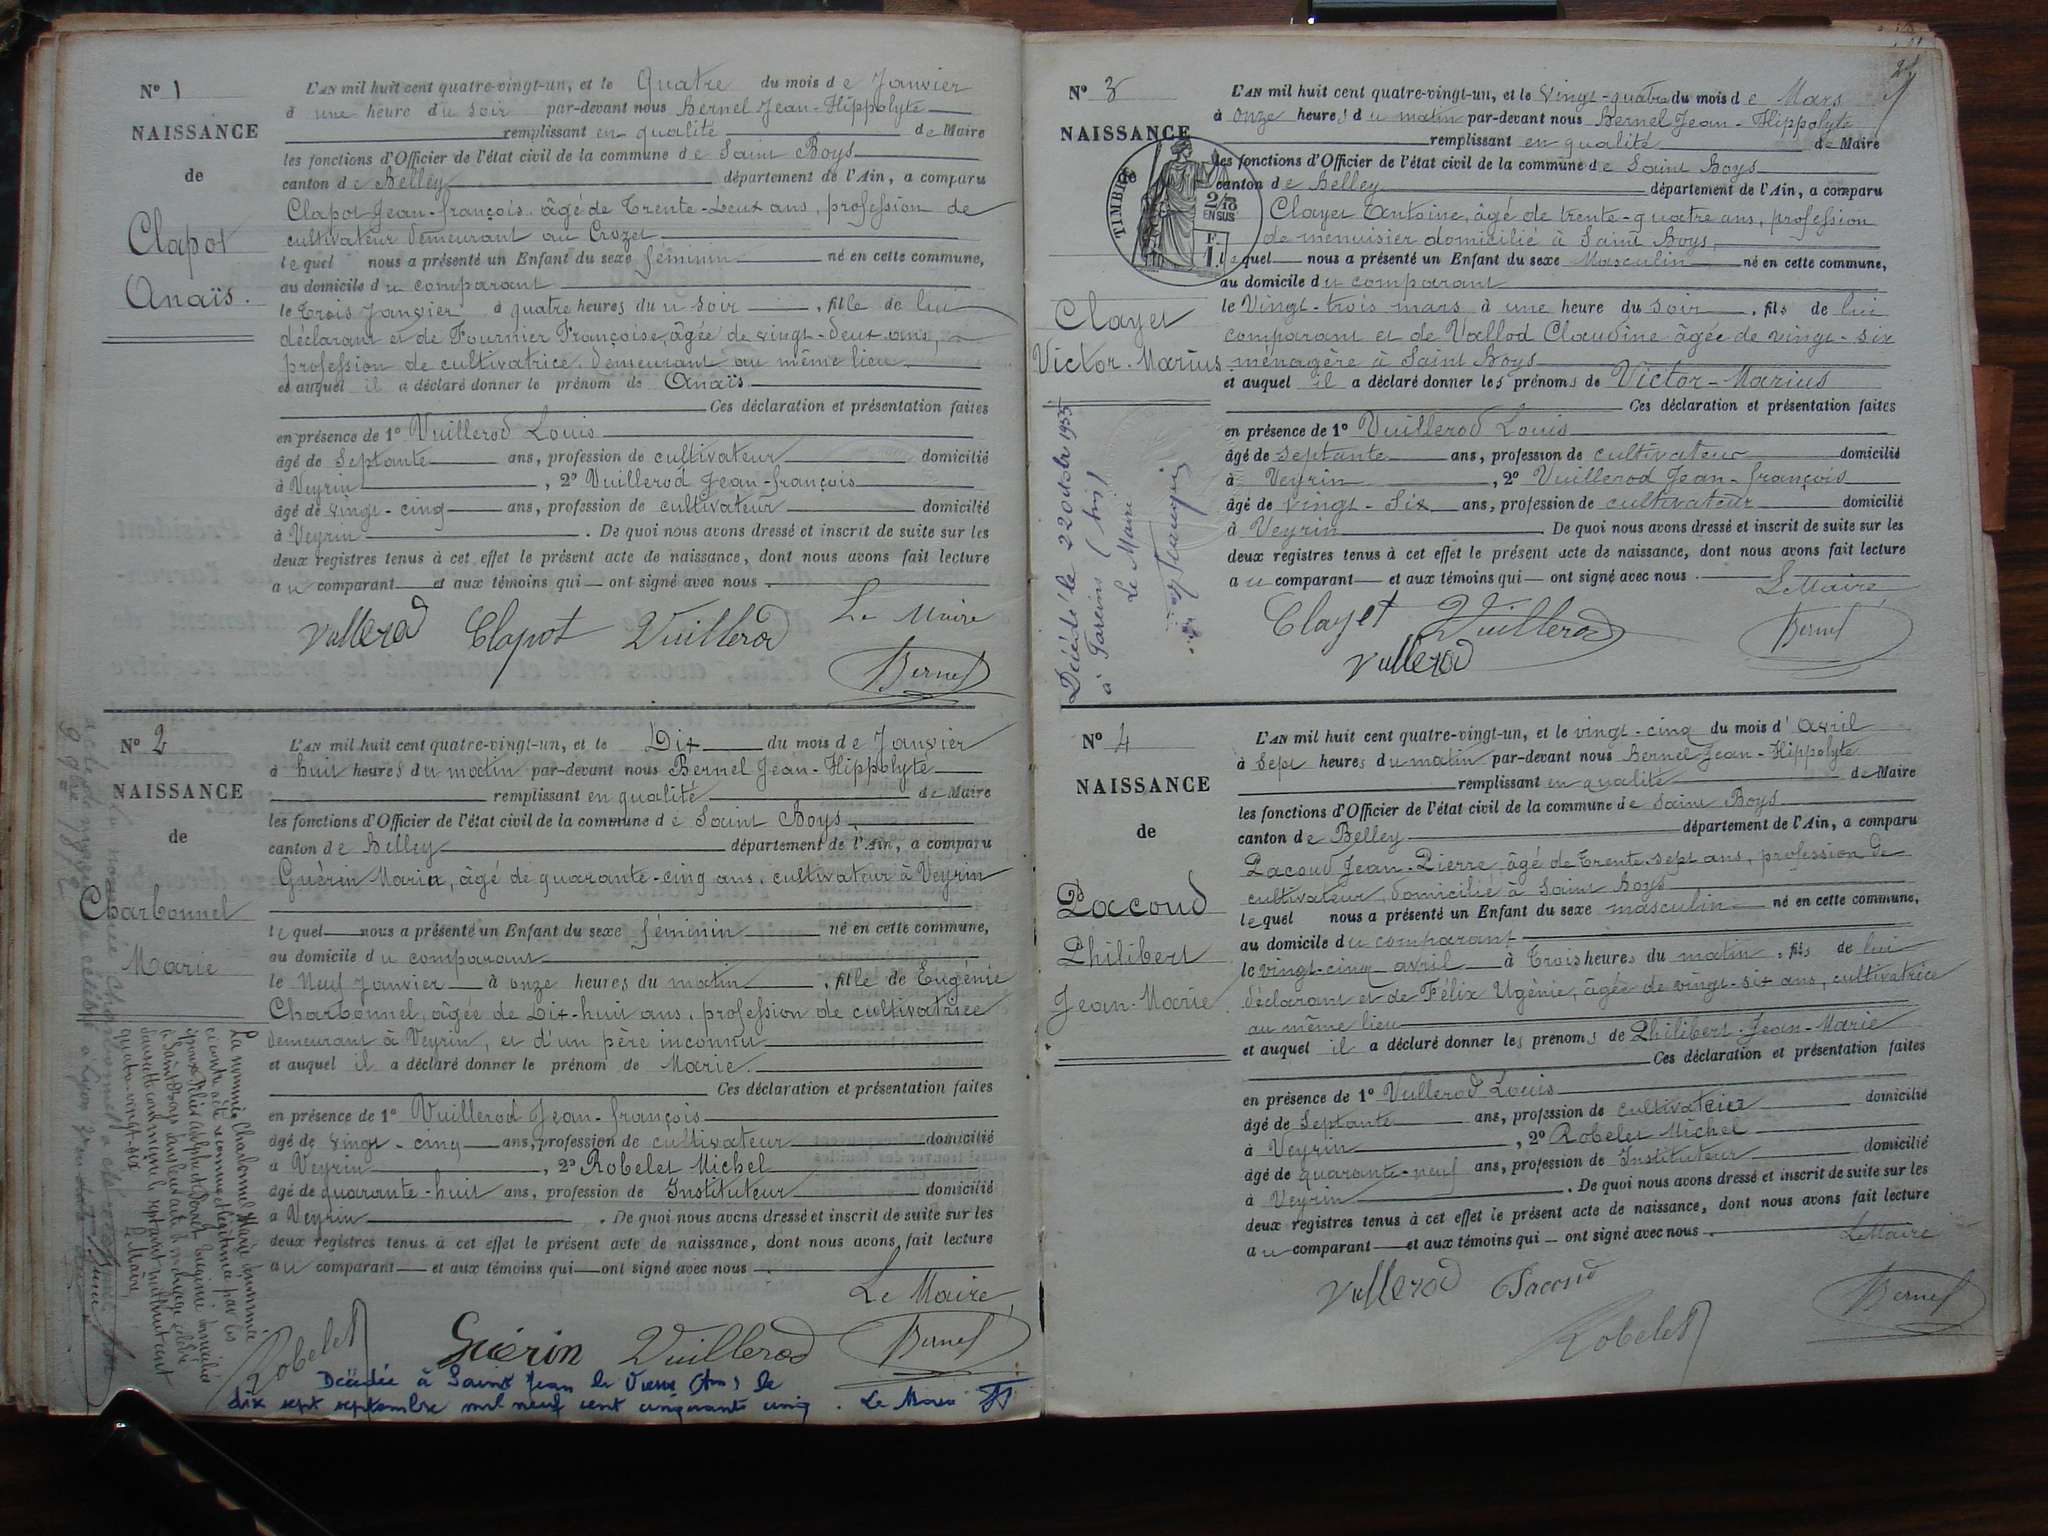 N° 1
NAISSANCE
de
Clapot
Anaïs.
L'AN mil huit cent quatre-vingt-un, et le Quatre du mois de Janvier
à une heure du soir par-devant nous Bernel Jean-Hippolyte
remplissant en qualité de Maire
les fonctions d'Officier de l'état civil de la commune de Saint Boys
canton de Belley département de l'Ain, a comparu
Clapot Jean-françois, âgé de Trente-Deux ans, profession de
cultivateur demeurant au Crozet
lequel nous a présenté un Enfant du sexe féminin né en cette commune,
au domicile du comparant
le Trois Janvier à quatre heures du soir, fille de lui
déclarant et de Fournier Françoise, âgée de vingt-deux ans,
profession de cultivatrice, demeurant au même lieu
et auquel il a déclaré donner le prénom de Anaïs
Ces déclaration et présentation faites
en présence de 1° Vuillerod Louis
âgé de Septante ans, profession de cultivateur domicilié
à Veyrin, 2° Vuillerod Jean-françois
âgé de vingt-cinq ans, profession de cultivateur domicilié
à Veyrin. De quoi nous avons dressé et inscrit de suite sur les
deux registres tenus à cet effet le présent acte de naissance, dont nous avons fait lecture
au comparant et aux témoins qui ont signé avec nous.
Le Maire
Vullerod Clapot Vuillerod
Bernel
N° 2
NAISSANCE
de
Charbonnel
Marie
L'AN mil huit cent quatre-vingt-un, et le Dix du mois de Janvier
à huit heures du matin par-devant nous Bernel Jean-Hippolyte
remplissant en qualité de Maire
les fonctions d'Officier de l'état civil de la commune de Saint Boys
canton de Belley département de l'Ain, a comparu
Guérin Maria, âgé de quarante-cinq ans, cultivateur à Veyrin
lequel nous a présenté un Enfant du sexe féminin né en cette commune,
au domicile du comparant
le Neuf Janvier à onze heures du matin, fille de Eugénie
Charbonnel, âgée de Dix-huit ans, profession de cultivatrice
demeurant à Veyrin, et d'un père inconnu
et auquel il a déclaré donner le prénom de Marie.
Ces déclaration et présentation faites
en présence de 1° Vuillerod Jean-françois
âgé de vingt-cinq ans, profession de cultivateur domicilié
à Veyrin, 2° Robelet Michel
âgé de quarante-huit ans, profession de Instituteur domicilié
à Veyrin. De quoi nous avons dressé et inscrit de suite sur les
deux registres tenus à cet effet le présent acte de naissance, dont nous avons fait lecture
au comparant et aux témoins qui ont signé avec nous.
Le Maire,
Robelet Guérin Vuillerod Bernel
Décédée à Saint Jean le Vieux (Ain) le
dix sept septembre mil neuf cent cinquante cinq. Le Maire
La nommée Charbonnel Marie
quatre-vingt-six
Le Maire,
N° 3
NAISSANCE
de
TIMBRE
2/10
EN SUS
F.
1.
Clayet
Victor-Marius
Décédé le 22 octobre 1955
à Gareins (Ain)
Le Maire
L'AN mil huit cent quatre-vingt-un, et le vingt-quatre du mois de Mars
à onze heures du matin par-devant nous Bernel Jean-Hippolyte
remplissant en qualité de Maire
les fonctions d'Officier de l'état civil de la commune de Saint Boys
canton de Belley département de l'Ain, a comparu
Clayet Antoine, âgé de trente-quatre ans, profession
de menuisier domicilié à Saint Boys,
lequel nous a présenté un Enfant du sexe Masculin né en cette commune,
au domicile du comparant
le Vingt-trois mars à une heure du soir, fils de lui
comparant et de Vallod Claudine âgée de vingt-six
ménagère à Saint Boys
et auquel il a déclaré donner les prénoms de Victor-Marius
Ces déclaration et présentation faites
en présence de 1° Vuillerod Louis
âgé de septante ans, profession de cultivateur domicilié
à Veyrin, 2° Vuillerod Jean-françois
âgé de vingt-six ans, profession de cultivateur domicilié
à Veyrin. De quoi nous avons dressé et inscrit de suite sur les
deux registres tenus à cet effet le présent acte de naissance, dont nous avons fait lecture
au comparant et aux témoins qui ont signé avec nous.
Le Maire
Clayet Vuillerod Bernel
Vullerod
N° 4
NAISSANCE
de
Pacoud
Philibert
Jean-Marie
L'AN mil huit cent quatre-vingt-un, et le vingt-cinq du mois d'avril
à Sept heures du matin par-devant nous Bernel Jean-Hippolyte
remplissant en qualité de Maire
les fonctions d'Officier de l'état civil de la commune de Saint Boys
canton de Belley département de l'Ain, a comparu
Pacoud Jean-Pierre, âgé de Trente-sept ans, profession de
cultivateur, domicilié à Saint Boys
lequel nous a présenté un Enfant du sexe masculin né en cette commune,
au domicile du comparant
le vingt-cinq avril à Trois heures du matin, fils de lui
déclarant et de Félix Ugénie, âgée de vingt-six ans, cultivatrice
au même lieu
et auquel il a déclaré donner les prénoms de Philibert-Jean-Marie
Ces déclaration et présentation faites
en présence de 1° Vuillerod Louis
âgé de Septante ans, profession de cultivateur domicilié
à Veyrin, 2° Robelet Michel
âgé de quarante-neuf ans, profession de Instituteur domicilié
à Veyrin. De quoi nous avons dressé et inscrit de suite sur les
deux registres tenus à cet effet le présent acte de naissance, dont nous avons fait lecture
au comparant et aux témoins qui ont signé avec nous.
Le Maire
Vullerod Pacoud
Robelet Bernel